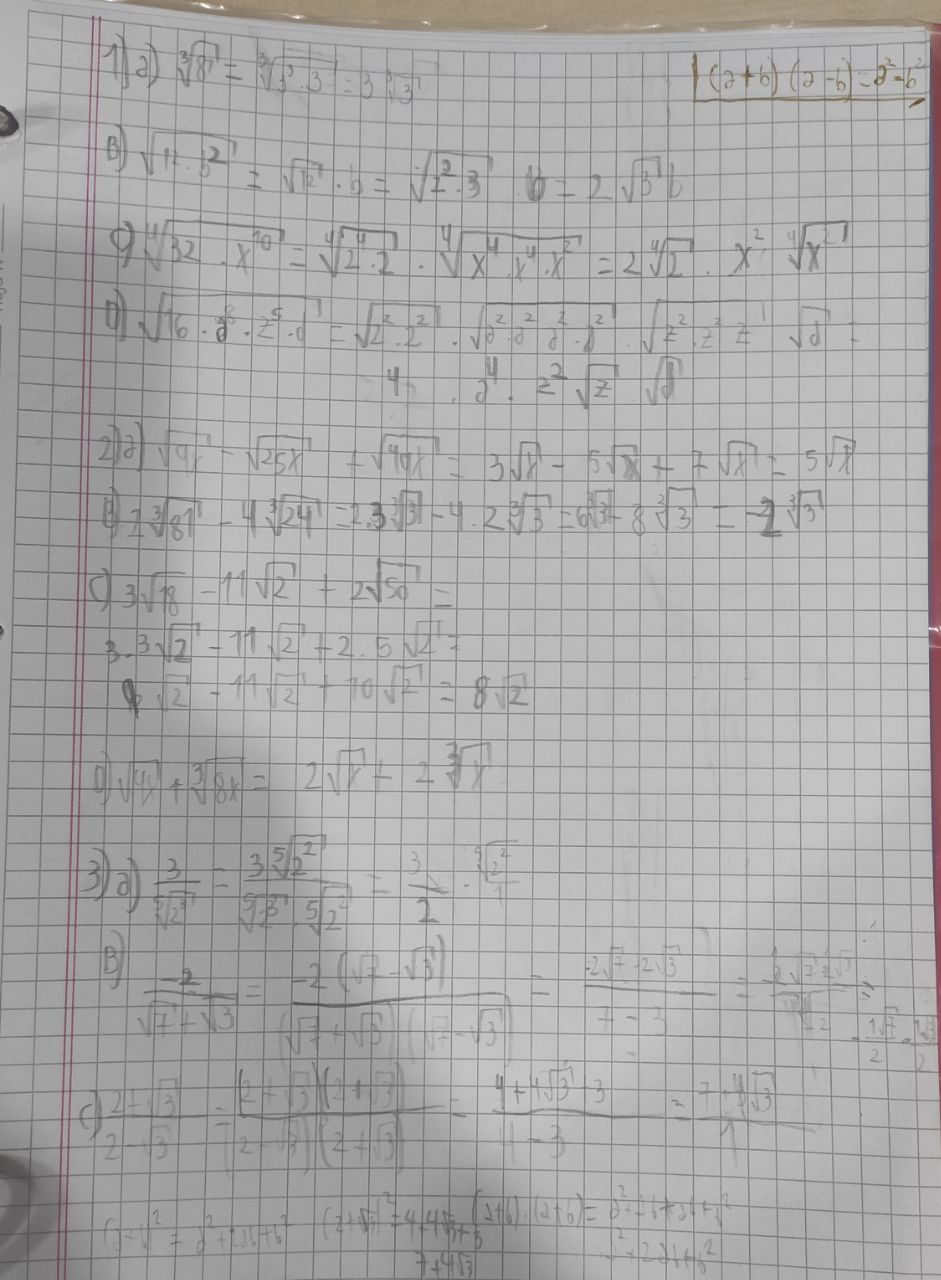 1) a) ∛81 = ∛(3³·3) = 3 ∛3
(a+b)(a-b)=a²-b²
B) √(12·b²) = √12 · b = √(2²·3) · b = 2 √3 b
C) ∜(32·x¹⁰) = ∜(2⁴·2) · ∜(x⁴·x⁴·x²) = 2∜2 · x² ∜(x²)
D) √(16·a⁸·z⁵·d) = √(2²·2²) · √(a²·a²·a²·a²) · √(z²·z²·z) √d =
4 · a⁴ · z² √z √d
2) a) √(9x) - √(25x) + √(49x) = 3√x - 5√x + 7√x = 5√x
B) 2∛81 - 4∛24 = 2·3∛3 - 4·2∛3 = 6∛3 - 8∛3 = -2∛3
C) 3√18 - 11√2 + 2√50 =
3·3√2 - 11√2 + 2·5√2 =
9√2 - 11√2 + 10√2 = 8√2
D) √(4x) + ∛(8x) = 2√x + 2∛x
3) a) 3/⁵√(2³) = 3⁵√(2²)/(⁵√(2³)·⁵√(2²)) = 3/2 · ⁵√(2²)/1
B) -2/(√7+√3) = -2(√7-√3)/((√7+√3)(√7-√3)) = (-2√7-2√3)/(7-3) =
C) (2+√3)/(2-√3) = (2+√3)(2+√3)/((2-√3)(2+√3)) = (4+4√3+3)/(4-3) = (7+4√3)/1
(a+b)² = a²+2ab+b² (2+√3)² = 4+4√3+3 (a+b)·(a+b) = a²+ab+ab+b²
7+4√3 a²+2ab+b²